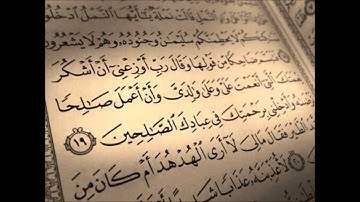 نملة يأيها النمل ادخلوا
لا يحطمنكم سليمن وجنوده وهم لا يشعرون
فتبسم ضاحكا من قولها وقال رب أوزعني أن أشكر
نعمتك التي أنعمت علي وعلى ولدي وأن أعمل صلحا
وأدخلني برحمتك في عبادك الصلحين ١٩
الطير فقال مالي لا أرى الهدهد أم كان من
لأعذبنه عذابا